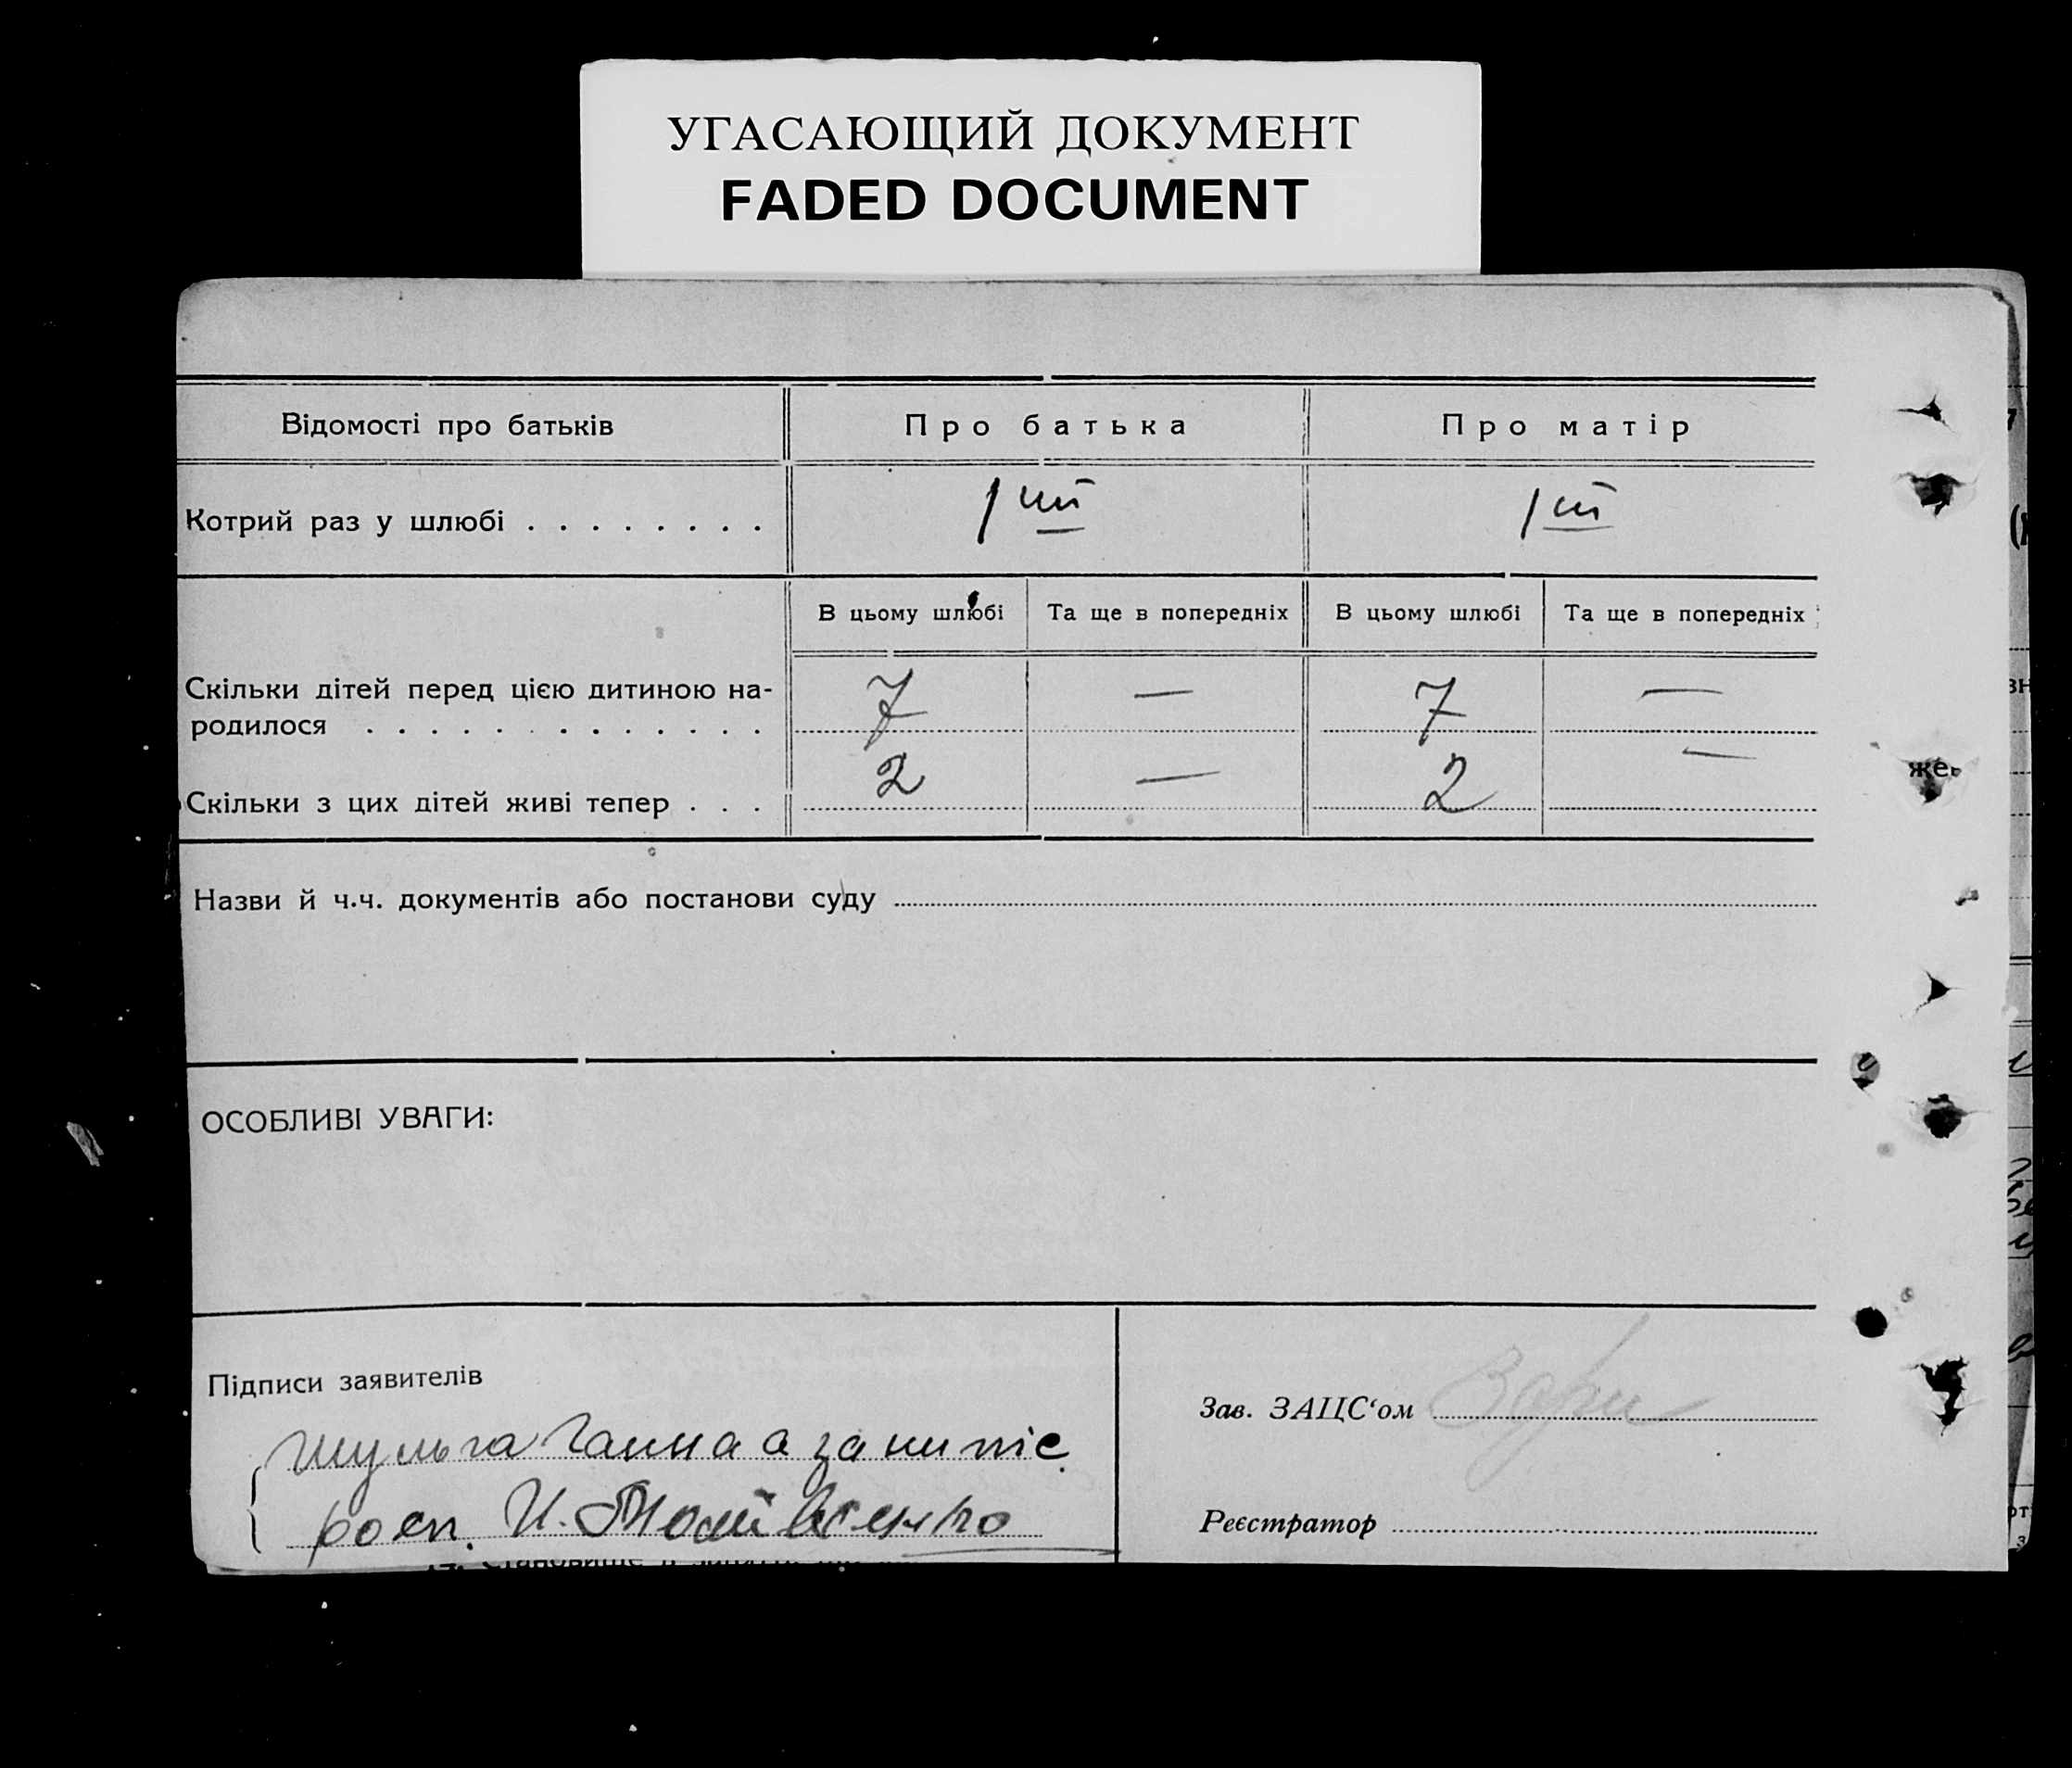 УГАСАЮЩИЙ ДОКУМЕНТ
FADED DOCUMENT
Відомості про батьків
Про батька
Про матір
Котрий раз у шлюбі . . . . . . . .
1ий
1й
В цьому шлюбі
Та ще в попередніх
В цьому шлюбі
Та ще в попередніх
Скільки дітей перед цією дитиною на-
родилося . . . . . . . . . . . . .
7
—
7
—
Скільки з цих дітей живі тепер . . .
2
—
2
—
Назви й ч.ч. документів або постанови суду
ОСОБЛИВІ УВАГИ:
Підписи заявителів
Шульга Ганна а за ни піс
росп. И.
Зав. ЗАЦС‘ом
Реєстратор